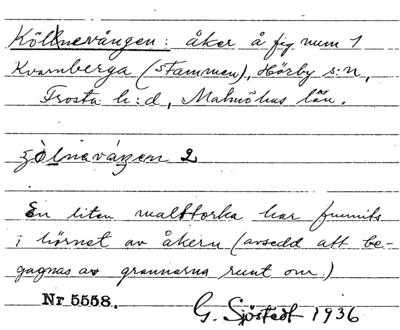 Köllnevången: åker å fig num 1
Kvarnberga (stammen), Hörby s:n,
Frosta h:d, Malmöhus län.
2
En liten malttorka har funnits
i hörnet av åkern (avsedd att be-
gagnas av grannarna runt om.)
Nr 5558.
G. Sjöstedt 1936